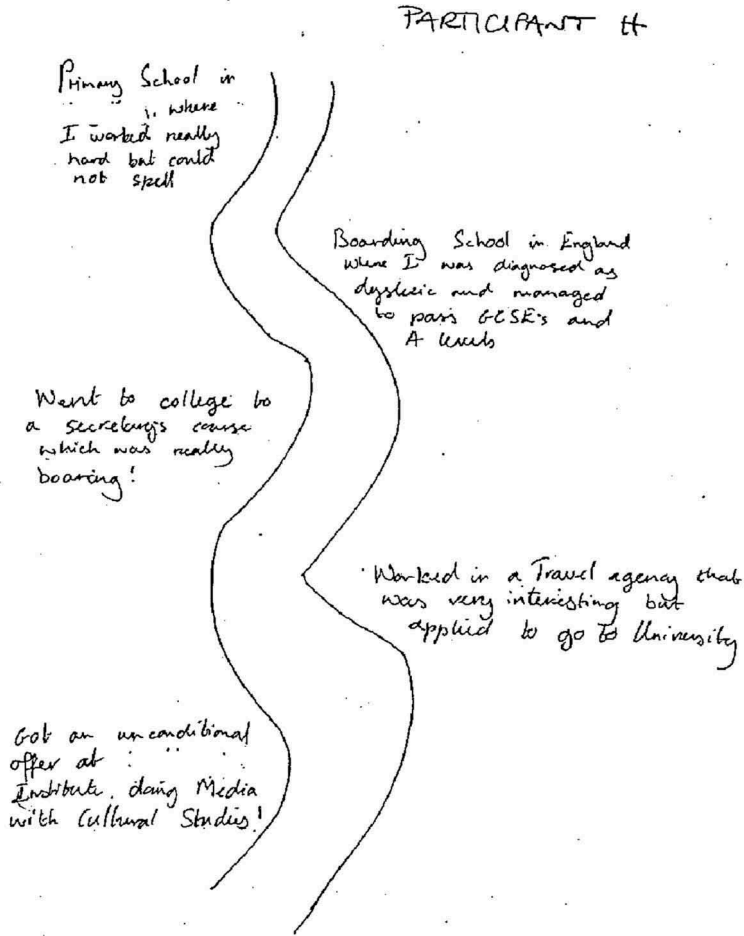 PARTICIPANT H
Primary School in
where
I worked really
hard but could
not spell
Boarding School in England
where I was diagnosed as
dyslexic and managed
to pass GCSE's and
A levels
Went to college to
a secretarys course
which was really
boaring!
Worked in a Travel agency that
was very interesting but
applied to go to University
Got an unconditional
offer at
Institute. doing Media
with Cultural Studies!